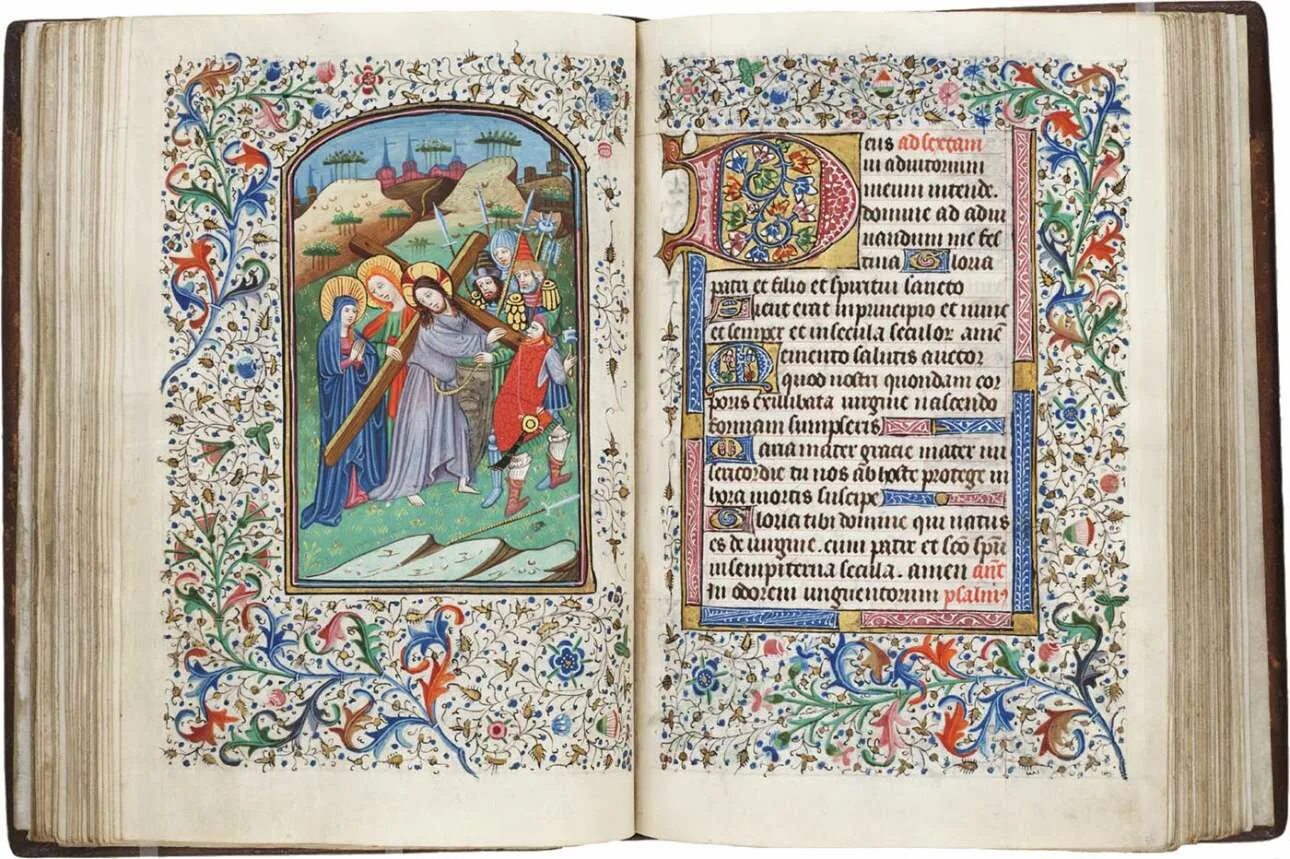 Deus ad sextam
in adiutorium
meum intende.
domine ad adiu
uandum me fes
tina Gloria
patri et filio et spiritui sancto
Sicut erat in principio et nunc
et semper et in secula seculor amen
Memento salutis auctor
quod nostri quondam cor
poris ex illibata uirgine nascendo
formam sumpseris
Maria mater gracie mater mi
sericordie tu nos ab hoste protege in
hora mortis suscipe
Gloria tibi domine qui natus
es de uirgine. cum patre et sco spu
in sempiterna secula. amen ant
In odorem unguentorum psalmus